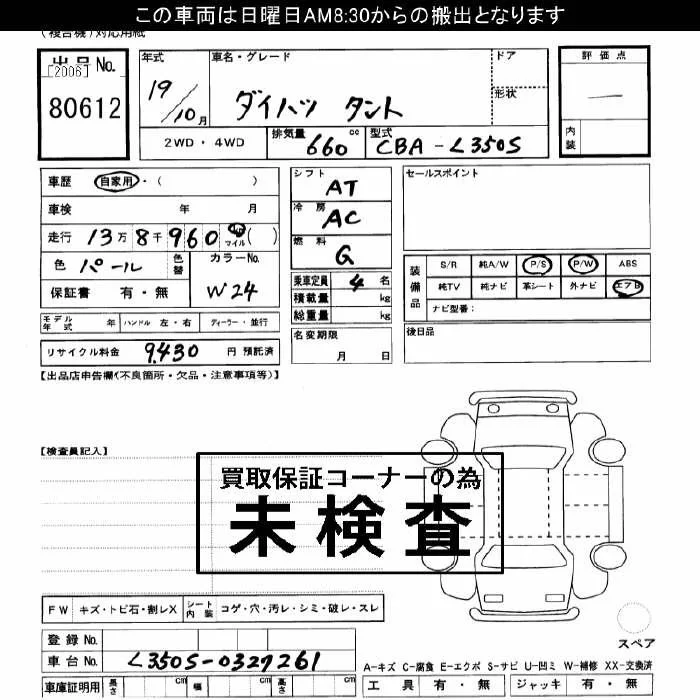 この車両は日曜日AM8:30からの搬出となります
(複合機)対応用紙
出品No.
[2006]
80612
年式
19/10月
車名・グレード
ダイハツ タント
ドア
形状
評価点
—
内装
2WD・4WD
排気量 660 cc
型式 CBA-L350S
車歴 自家用・( )
車検 年 月
走行 13万8千960 km マイル ( )
色 パール
色替
カラーNo.
W24
保証書 有・無
シフト
AT
冷房
AC
燃料
G
乗車定員 4 名
積載量 kg
総重量 kg
名変期限
月 日
セールスポイント
装備品
S/R 純A/W P/S P/W ABS
純TV 純ナビ 革シート 外ナビ エアB
ナビ型番：
後日品
モデル年式 年 ハンドル 左・右 ディーラー・並行
リサイクル料金 9,430 円 預託済
【出品店申告欄(不良箇所・欠品・注意事項等)】
【検査員記入】
買取保証コーナーの為
未検査
FW キズ・トビ石・割レX シート内装 コゲ・穴・汚レ・シミ・破レ・スレ
登録No.
車台No. L350S-0327261
スペア
A-キズ C-腐食 E-エクボ S-サビ U-凹ミ W-補修 XX-交換済
車庫証明用 長さ cm 幅 cm 高さ cm
工具 有・無 ジャッキ 有・無